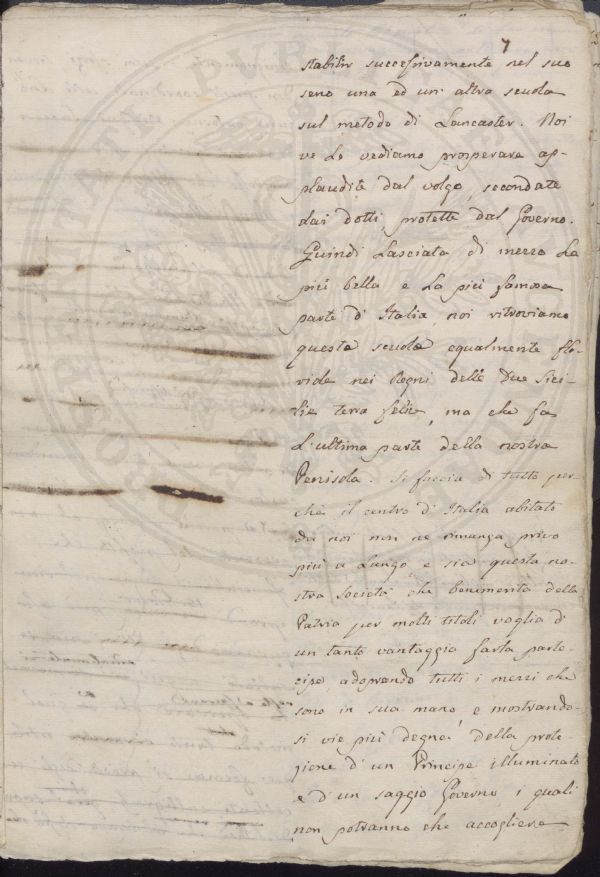 7
stabilir successivamente nel suo
seno una ed un' altra scuola
sul metodo di Lancaster. Noi
ve le vediamo prosperare ap-
plaudite dal volgo, secondate
dai dotti protette dal Governo.
Quindi lasciata di mezzo la
più bella e la più famosa
parte d' Italia, noi ritroviamo
queste scuole equalmente flo-
ride nei Regni delle Due Sici-
lie terra felice, ma che fa
l' ultima parte della nostra
Penisola. Si faccia di tutto per-
chè il centro d' Italia abitato
da noi non ne rimanga privo
più a lungo, e sia questa no-
stra Società che benemerita della
Patria per molti titoli voglia d'
un tanto vantaggio farla parte-
cipe, adoprando tutti i mezzi che
sono in sua mano e mostrando-
si vie più degna della prote-
zione d' un Principe illuminato
e d' un saggio Governo, i quali
non potranno che accogliere